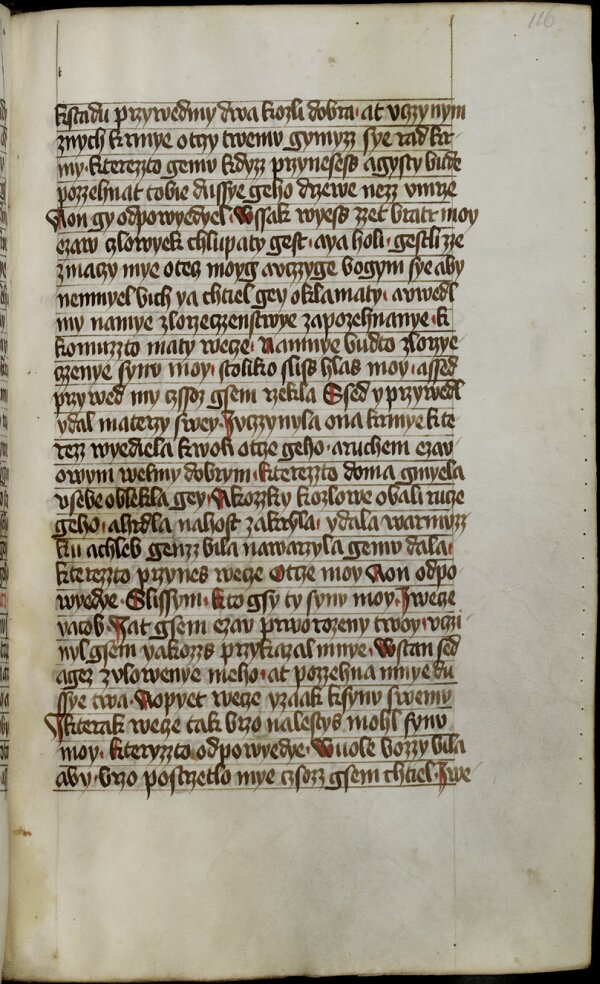 116
kstadu przywedmy dwa kozli dobra· at vczynym
znych krmye otczy twemu gymyzz sye rad kr
my· kterezzto gemu kdyzz przynesess agysty bude
pozzehnat tobie dussye geho drzewe nezz vmrze
Aon gy odpowyedyel· wssak wyess zzet bratr moy
ezaw czlowyek chlupaty gest· aya holi· gestli zze
zmaczy mye otecz moyg avczzyge bogym sye aby
nemnyel bich ya chtiel gey oklamaty· avwedl
my namye zlorzeczenstwye zapozehnanye· k
komuzzto maty wecze· Namnye budto zlorze
czenye synu moy· stoliko sliss hlas moy· assed
przywed my czssoz gsem rzekla Ssed y przywedl
ydal materzy swey· Jvczynyla ona krmye kte
rezz wyediela kwoli otcze geho· aruchem ezav
owym welmy dobrym· kterezzto doma gmyela
vsebe oblekla gey· Akozzky kozlowe obali rucze
geho· ahrdla nahost zakryla· ydala warmuzz
ku achleb genzz bila nawarzyla gemu dala·
kterezzto przynes wecze Otcze moy Aon odpo
wyedye· Slissym· kto gsy ty synu moy· Jwecze
yacob· Jat gsem ezav prworozeny twoy· vczi
nyl gsem yakozzs przykazal mnye· Wstan sed
agez zvlowenye meho· at pozzehna mnye du
ssye twa· Aopyet wecze yzaak ksynu swemu
Jkterak wecze tak brzo nalestys mohl synu
moy· kteryzzto odpowyedye· Wuole bozzy bila
aby· brzo postrzetlo mye czsozz gsem chtiel· Jwe